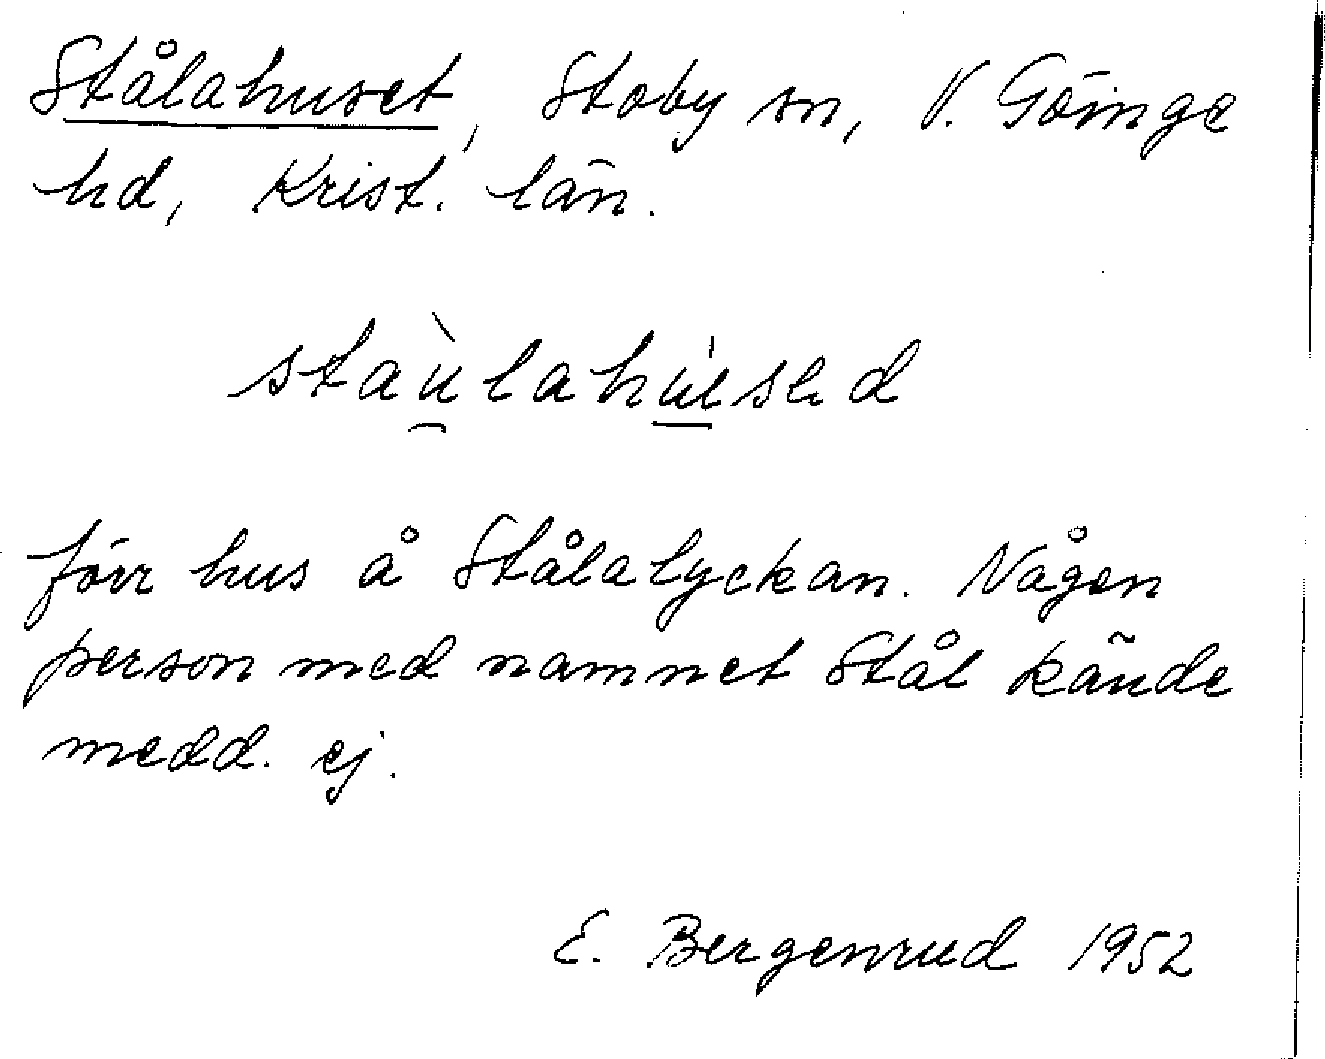 Stålahuset, Stoby sn, V. Göinge
hd, Krist. län.
staù̯lahúsəd
förr hus å Stålalyckan. Någon
person med namnet Stål kände
medd. ej.
E. Bergenrud 1952